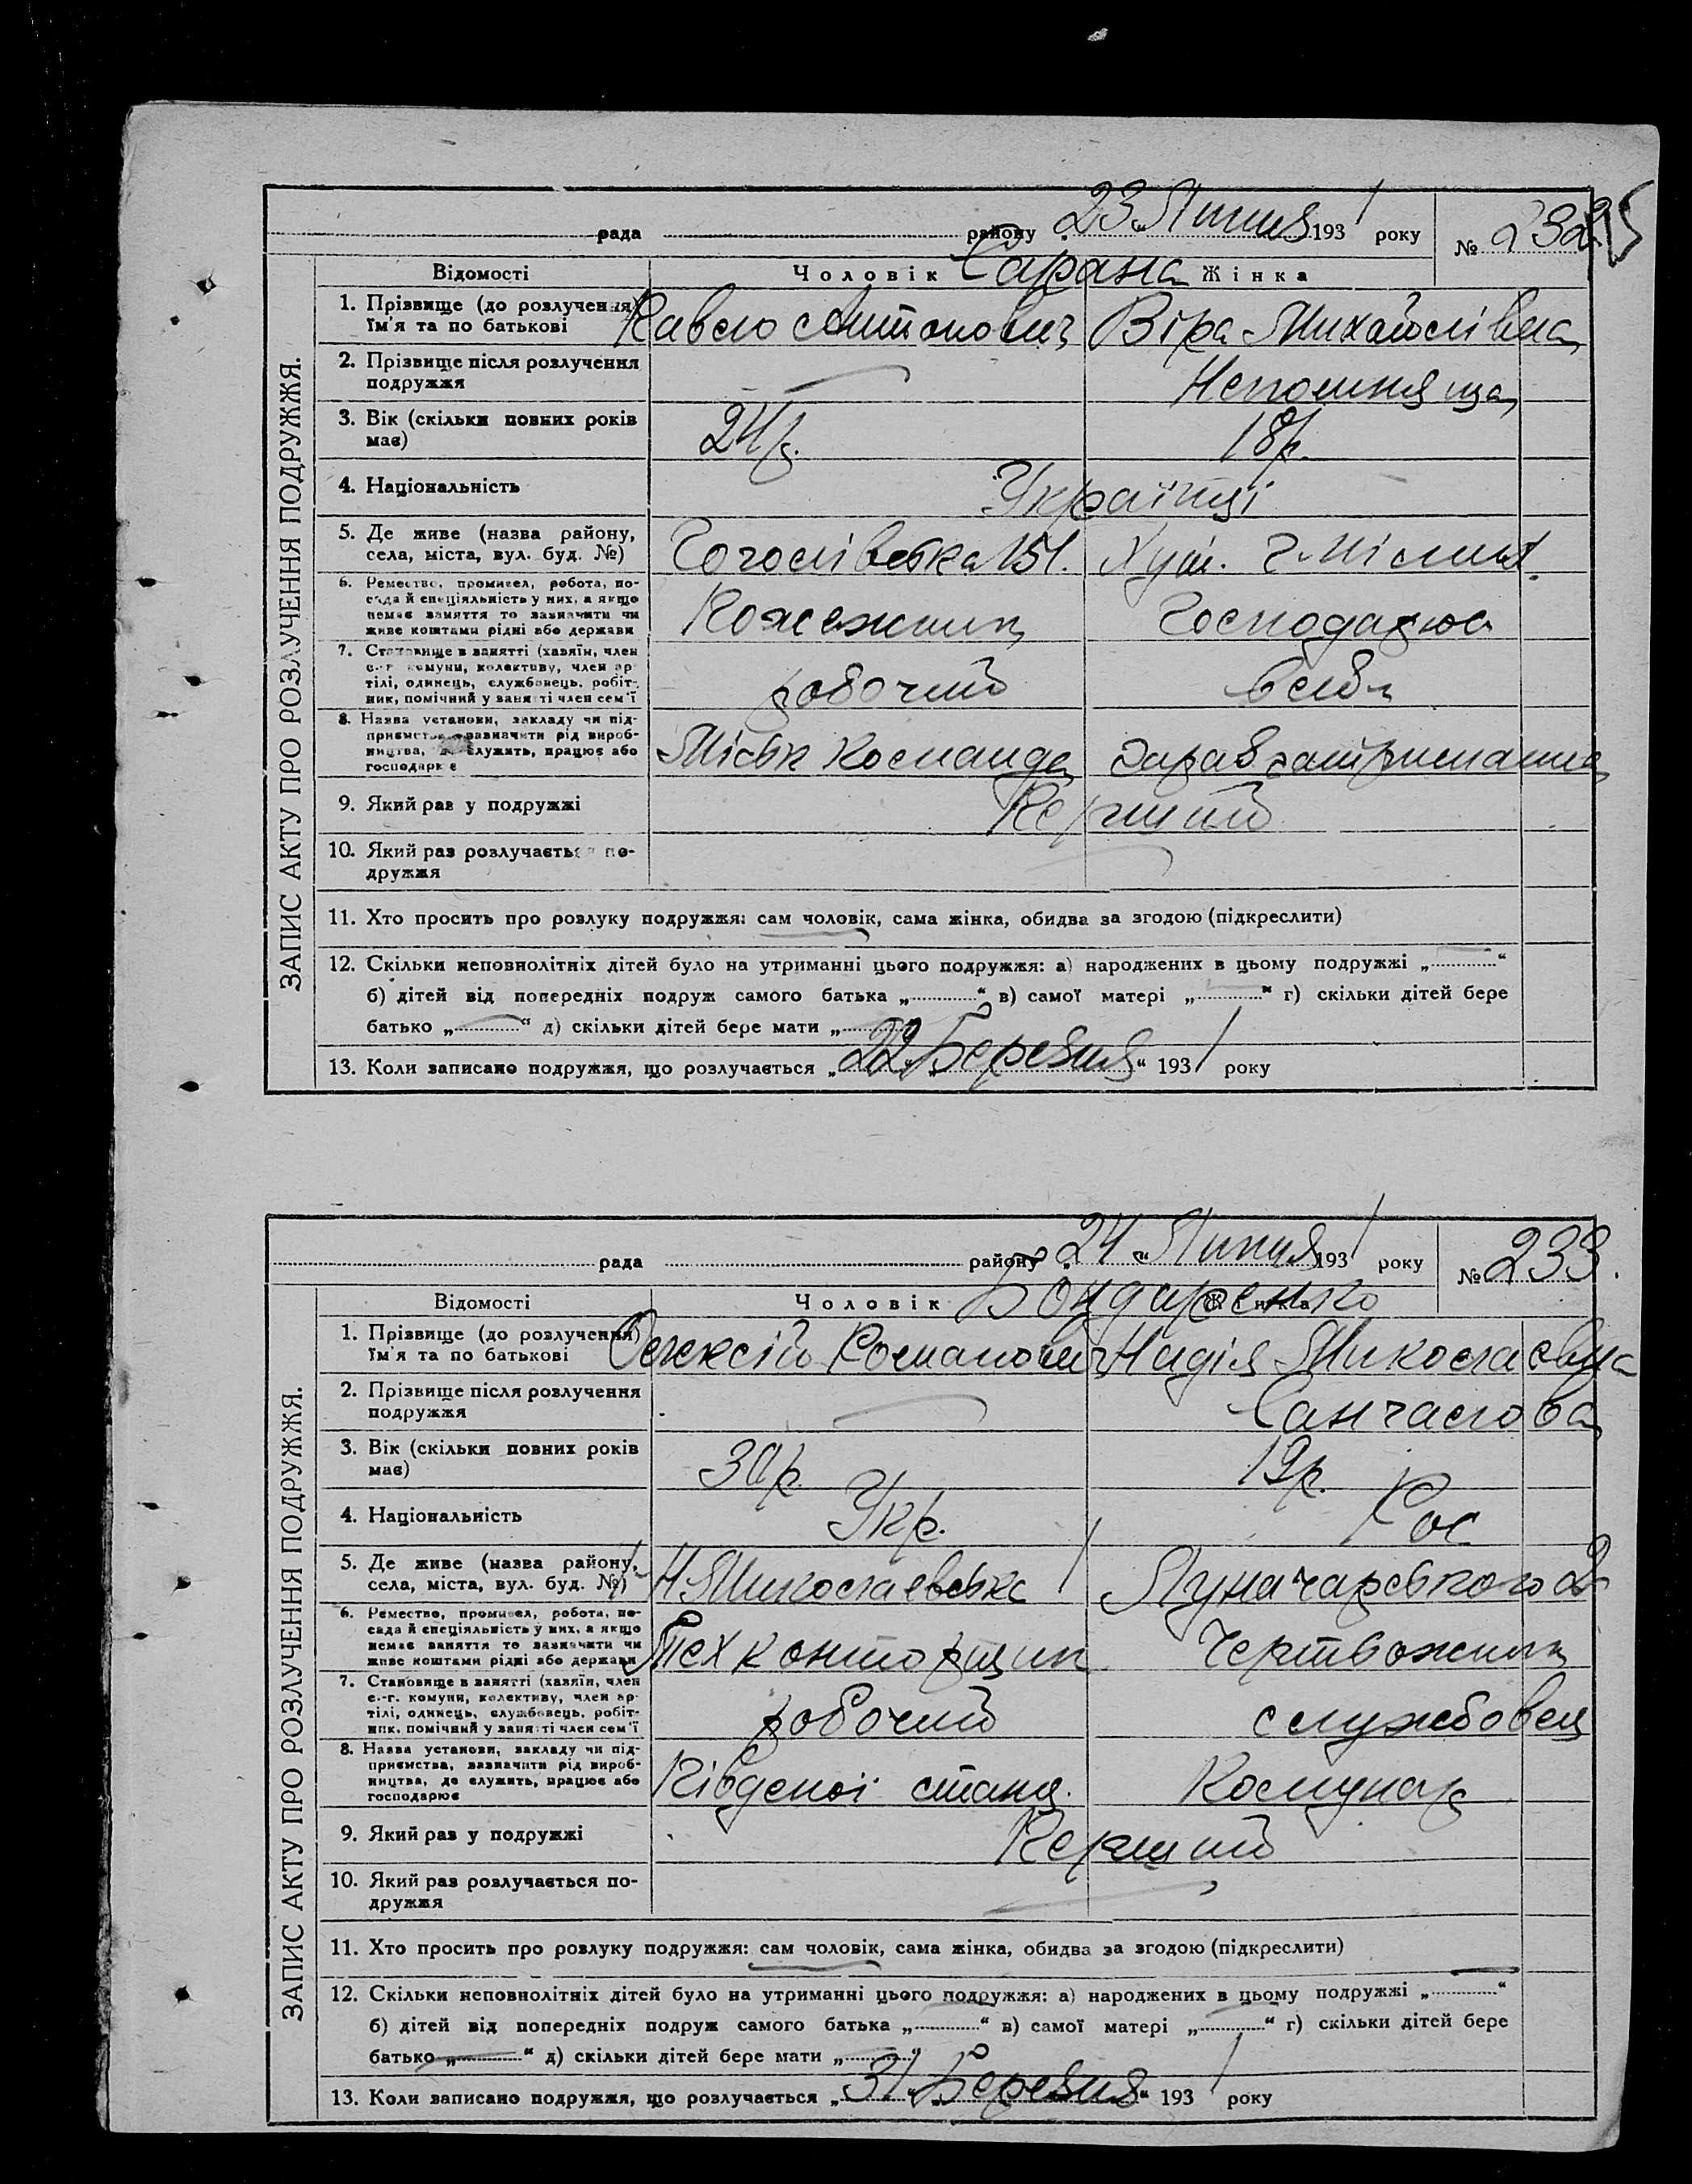 ЗАПИС АКТУ ПРО РОЗЛУЧЕННЯ ПОДРУЖЖЯ.
рада району „23„ Липня 1931 року № 232
Відомості Чоловік Сарана Жінка
1. Прізвище (до розлучення) Ім'я та по батькові Павло Антонович Віра Михайлівна
2. Прізвище після розлучення подружжя Непомняща
3. Вік (скільки повних років має) 24 р. 18 р.
4. Національність Українці
5. Де живе (назва району, села, міста, вул. буд. №) Гоголівська 151. Хут.
6. Ремество, промисел, робота, посада й спеціяльність у них, а якщо немає заняття то зазначити чи живе коштами рідні або держави Пожежник Господарює
7. Становище в занятті (хазяїн, член с.-г. комуни, колективу, член артілі, одинець, службовець, робітник, помічний у занятті член сем'ї робочий в себе
8. Назва установи, закладу чи підприємства, зазначити рід виробництва, де служить, працює або господарює Міськ команда
9. Який раз у подружжі Перший
10. Який раз розлучається подружжя
11. Хто просить про розлуку подружжя: сам чоловік, сама жінка, обидва за згодою (підкреслити)
12. Скільки неповнолітніх дітей було на утриманні цього подружжя: а) народжених в цьому подружжі „ “
б) дітей від попередніх подруж самого батька „ “ в) самої матері „ “ г) скільки дітей бере
батько „ “ д) скільки дітей бере мати „ “
13. Коли записано подружжя, що розлучається „22„ „Березня“ 1931 року
ЗАПИС АКТУ ПРО РОЗЛУЧЕННЯ ПОДРУЖЖЯ.
рада району „24„ Липня 1931 року № 233.
Відомості Чоловік Бондаренко Жінка
1. Прізвище (до розлучення) Ім'я та по батькові Олексій Романович Надія Миколаєвна
2. Прізвище після розлучення подружжя
3. Вік (скільки повних років має) 30 р. 19 р.
4. Національність Укр. Рос
5. Де живе (назва району, села, міста, вул. буд. №) Н Миколаевська Луначарського 2
6. Ремество, промисел, робота, посада й спеціяльність у них, а якщо немає заняття то зазначити чи живе коштами рідні або держави Тех конторщик Чертьожник
7. Становище в занятті (хазяїн, член с.-г. комуни, колективу, член артілі, одинець, службовець, робітник, помічний у занятті член сем'ї робочий службовец
8. Назва установи, закладу чи підприємства, зазначити рід виробництва, де служить, працює або господарює Південої станц. Комунар
9. Який раз у подружжі Перший
10. Який раз розлучається подружжя
11. Хто просить про розлуку подружжя: сам чоловік, сама жінка, обидва за згодою (підкреслити)
12. Скільки неповнолітніх дітей було на утриманні цього подружжя: а) народжених в цьому подружжі „ “
б) дітей від попередніх подруж самого батька „ “ в) самої матері „ “ г) скільки дітей бере
батько „ “ д) скільки дітей бере мати „ “
13. Коли записано подружжя, що розлучається „31“ „Березня“ 1931 року